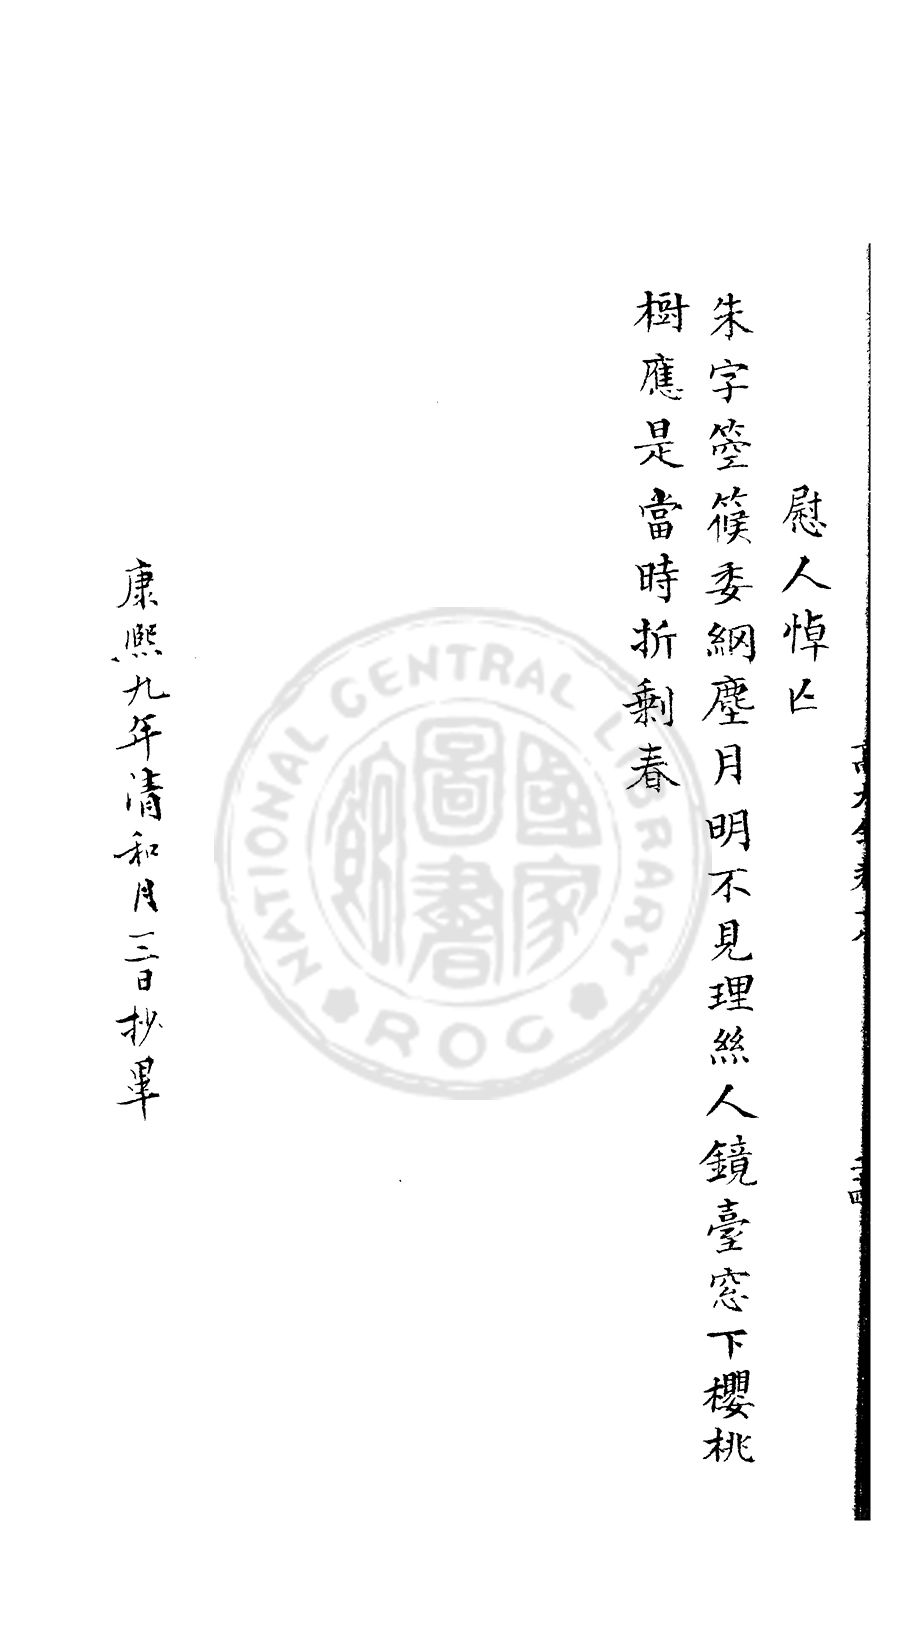 慰人悼亡
朱字箜篌委網塵月明不見理絲人鏡臺窓下櫻桃
樹應是當時折剩春
康熙九年清和月三日抄畢
國家
圖書
館
NATIONAL CENTRAL LIBRARY
ROC